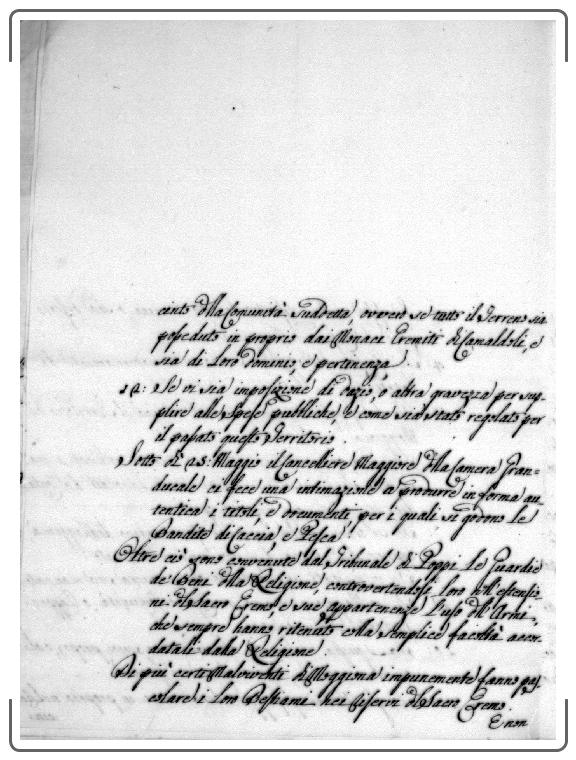 cinto dlla Coṁunità Suddetta, ovvero se tutto il Terreno sia
posseduto in proprio dai Monaci Eremiti di Camaldoli, e
sia di Loro dominio, e pertinenza.
12: Se vi sia imposizione di dazio, o altra gravezza per sup-
plire alle spese pubbliche, e come sia stato regolato per
il passato questo Territorio.
Sotto dì 23: Maggio il Cancelliere Maggiore dlla Camera Gran-
ducale ci fece una intimazione a produrre in forma au
tentica i titoli, e documenti per i quali si godono le
Bandite di Caccia, e Pesca.
Oltre ciò sono convenute dal Tribunale di Poppi le Guardie
de' Beni dlla Religione, controvertendosi loro nell'estensio
ni dl Sacro Eremo, e sue appartenenze l'uso dll'Armi,
che sempre hanno ritenuto colla semplice facoltà accor
datali dalla Religione.
Di più certi Malviventi di Moggiona impunemente fanno pas
colare i loro Bestiami nei Riservi dl Sacro Eremo.
E non